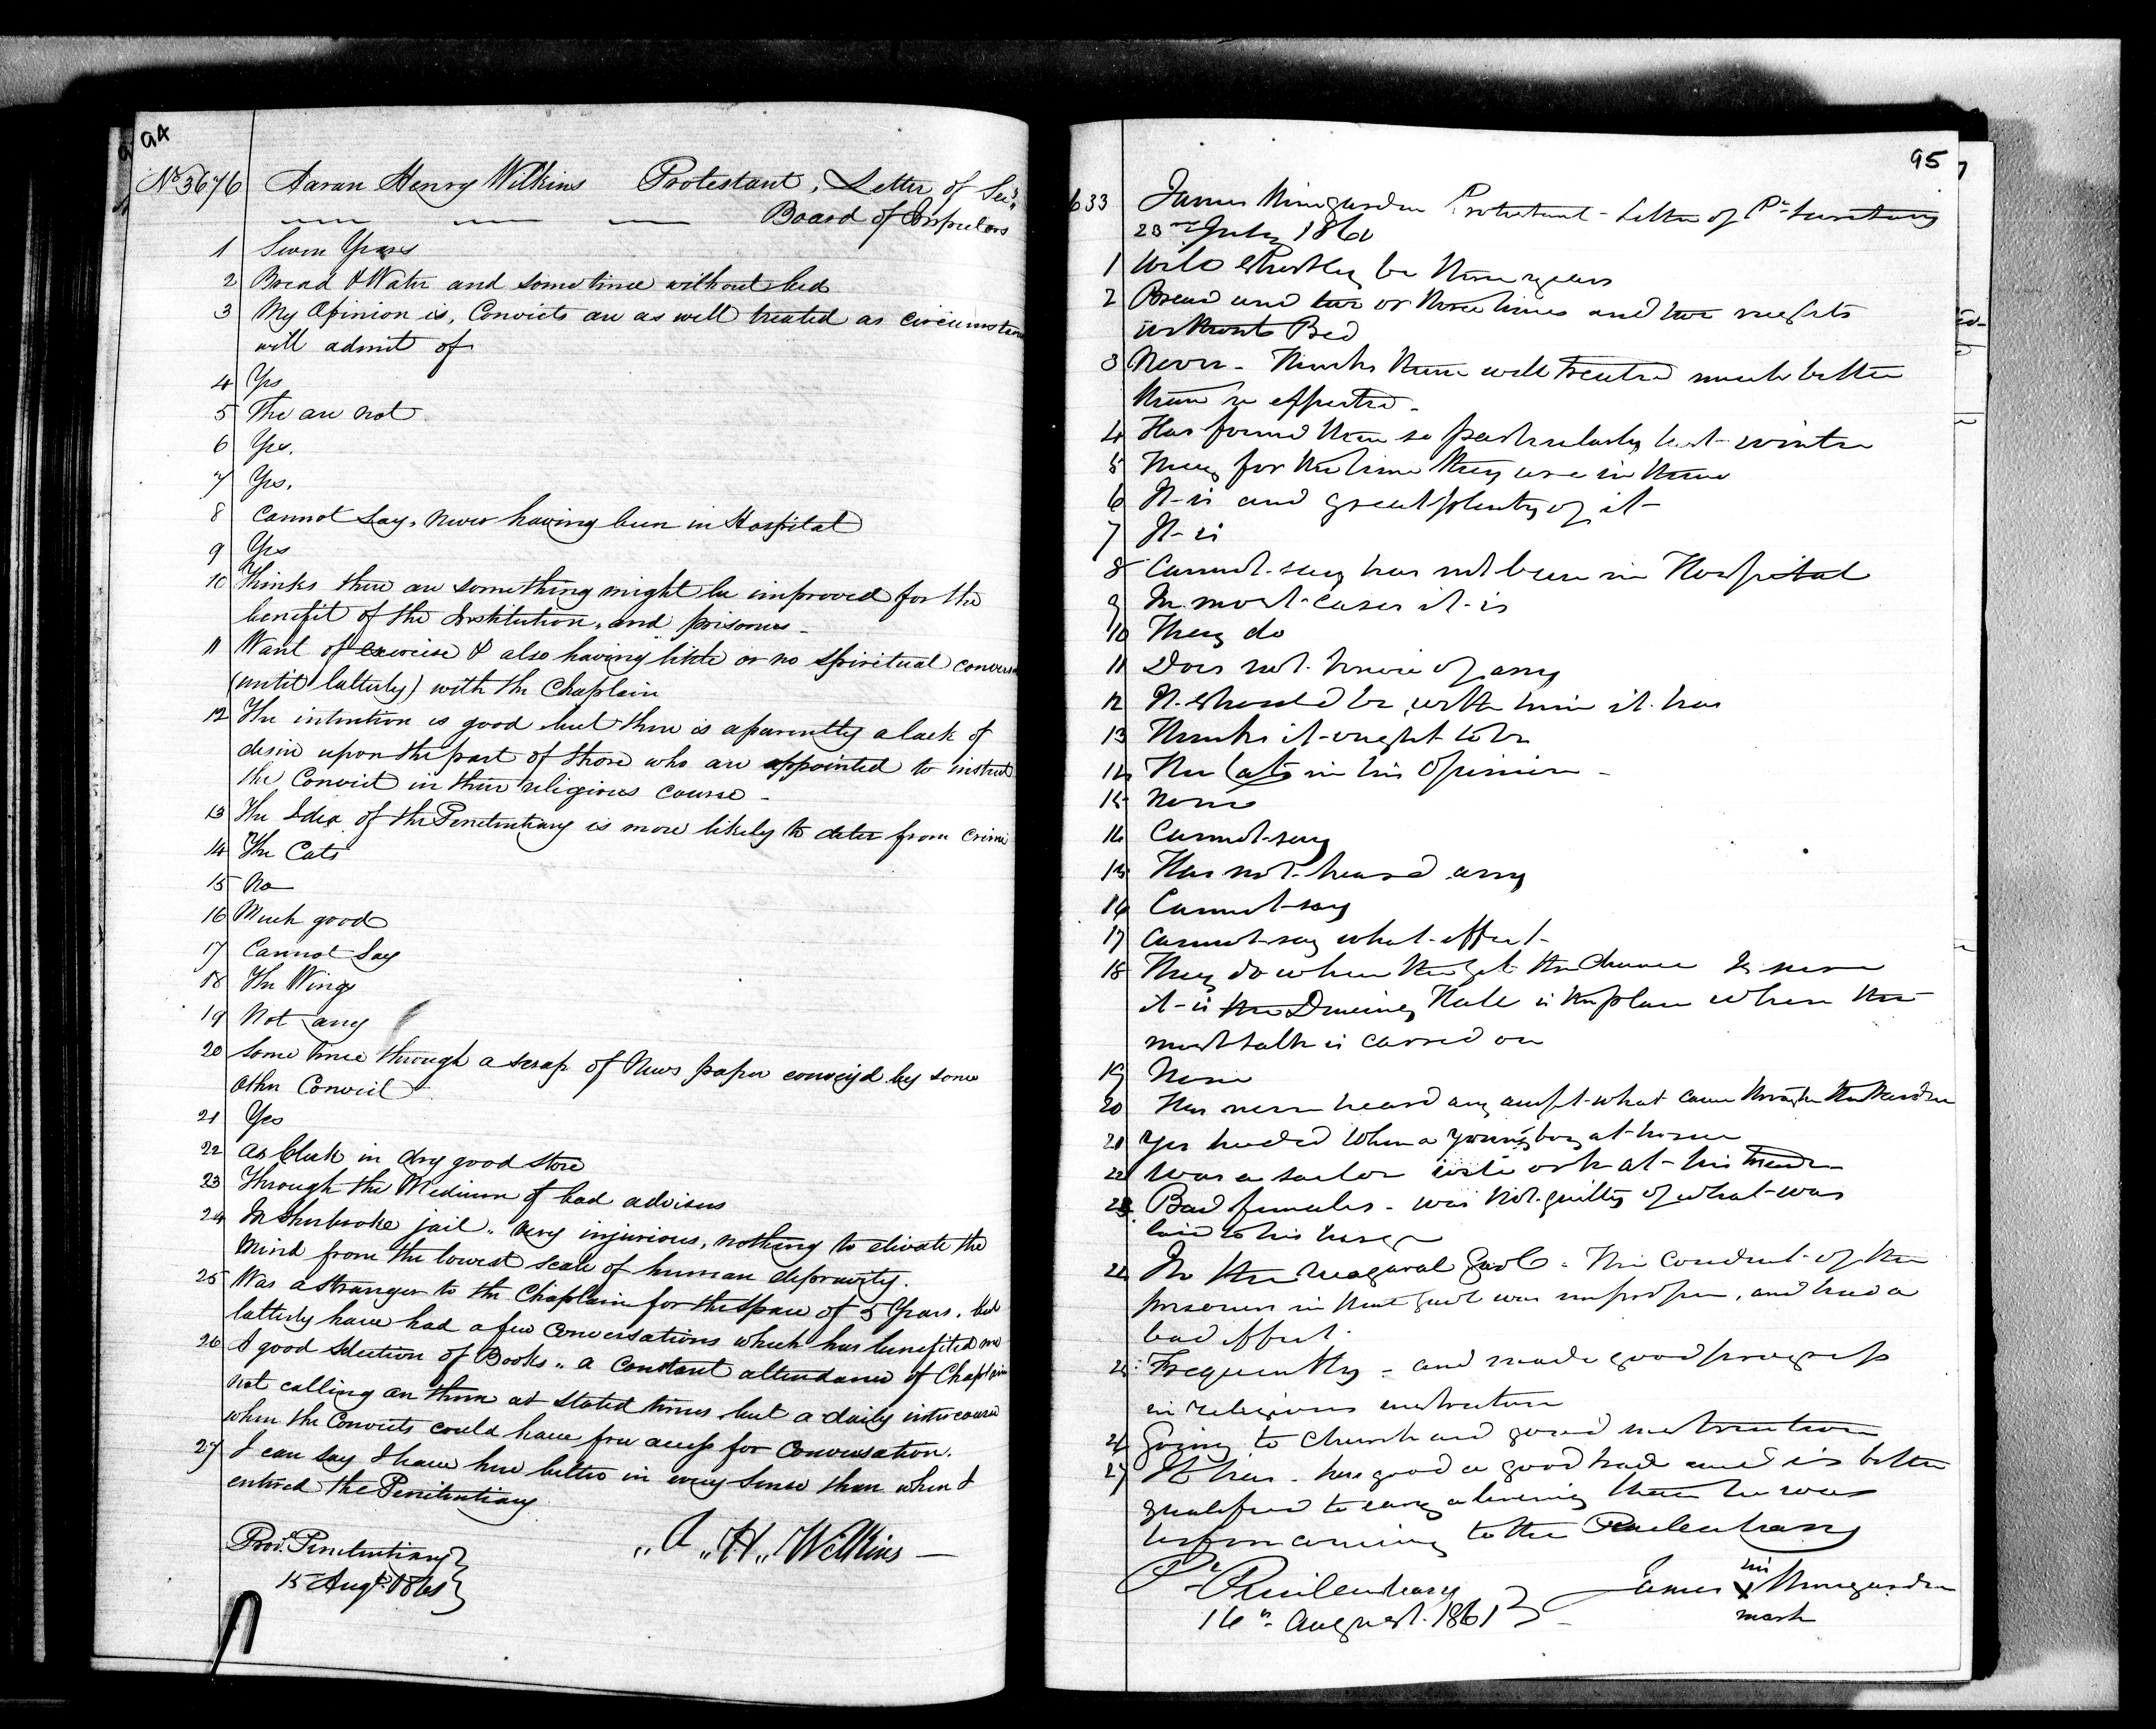 94
No 3676 Aaron Henry Wilkins Protestant, Letter of Secy.
Board of Inspectors
1 Seven Years
2 Bread & Water and sometimes without bed
3 My Opinion is, Convicts are as well treated as circumstan
will admit of
4 Yes
5 The are not
6 Yes.
7 Yes.
8 Cannot Say, never having been in Hospital
9 Yes
10 Thinks there are something might be improved for the
benefit of the Institution, and prisoners -
11 Want of exercise & also having little or no Spiritual convers
(until latterly) with the Chaplain
12 The intention is good but there is aparently a lack of
desire upon the part of those who are appointed to instruct
the Convict in their religious course -
13 The Idea of the Penitentiary is more likely to deter from crime
14 The Cats
15 No
16 Much good
17 Cannot Say
18 The Wings
19 Not any
20 Some times through a scrap of News paper convey'd by some
other Convict
21 Yes
22 As Clerk in dry good store
23 Through the Medium of bad advisers
24 In Sherbrooke jail, very injurious, nothing to elivate the
mind from the lowest scale of human depravity.
25 Was a stranger to the Chaplain for the space of 5 Years. but
latterly have had a few Conversations which has benefited me
26 A good selection of Books, a Constant attendance of Chaplain
not calling on them at stated times but a daily intercourse
when the Convicts could have free access for Conversation.
27 I can say I have here better in every sense than when I
entered the Penitentiary
Prov. Penitentiary
15 Augt. 1861
"A" "H" Wilkins
95
633 James Protestant - Letter of Pr. Secretary
23rd July 1861
1 Will shortly be three years
2 Bread and two or three times and two nights
without Bed
3 Never - Thinks them well treated much better
than he expected -
4 Has found them so particularly last winter
5 They for the time they are in them
6 It is and great plenty of it
7 It is
8 Cannot say has not been in Hospital
9 In most cases it is
10 They do
11 Does not know of any
12 It should be, with him it has
13 Thinks it ought to be
14 The Cats in his Opinion -
15 None
16 Cannot say
15 Has not heard any
16 Cannot say
17 Cannot say what effect
18 They do when the get the chance
it is the Dineing Hall is the place where the
most talk is carred on
19 None
20 Has never heard any except what came through the Warden
21 Yes when a young boy at home
22 Was a sailor
23 Bad females - was not guilty of what was
laid to his charge
24 In the Niagaral Gaol - The conduct of the
prisoners in that gaol was improper, and had a
bad effect.
25 Frequently - and made good progress
in religious instruction
26 Going to church and good instruction
27 It has - has good a good trade and is better
qualified to earn a liveing than he was
before comeing to the Penitentiary
Pr Penitentiary
16th August 1861
James
his
X
mark